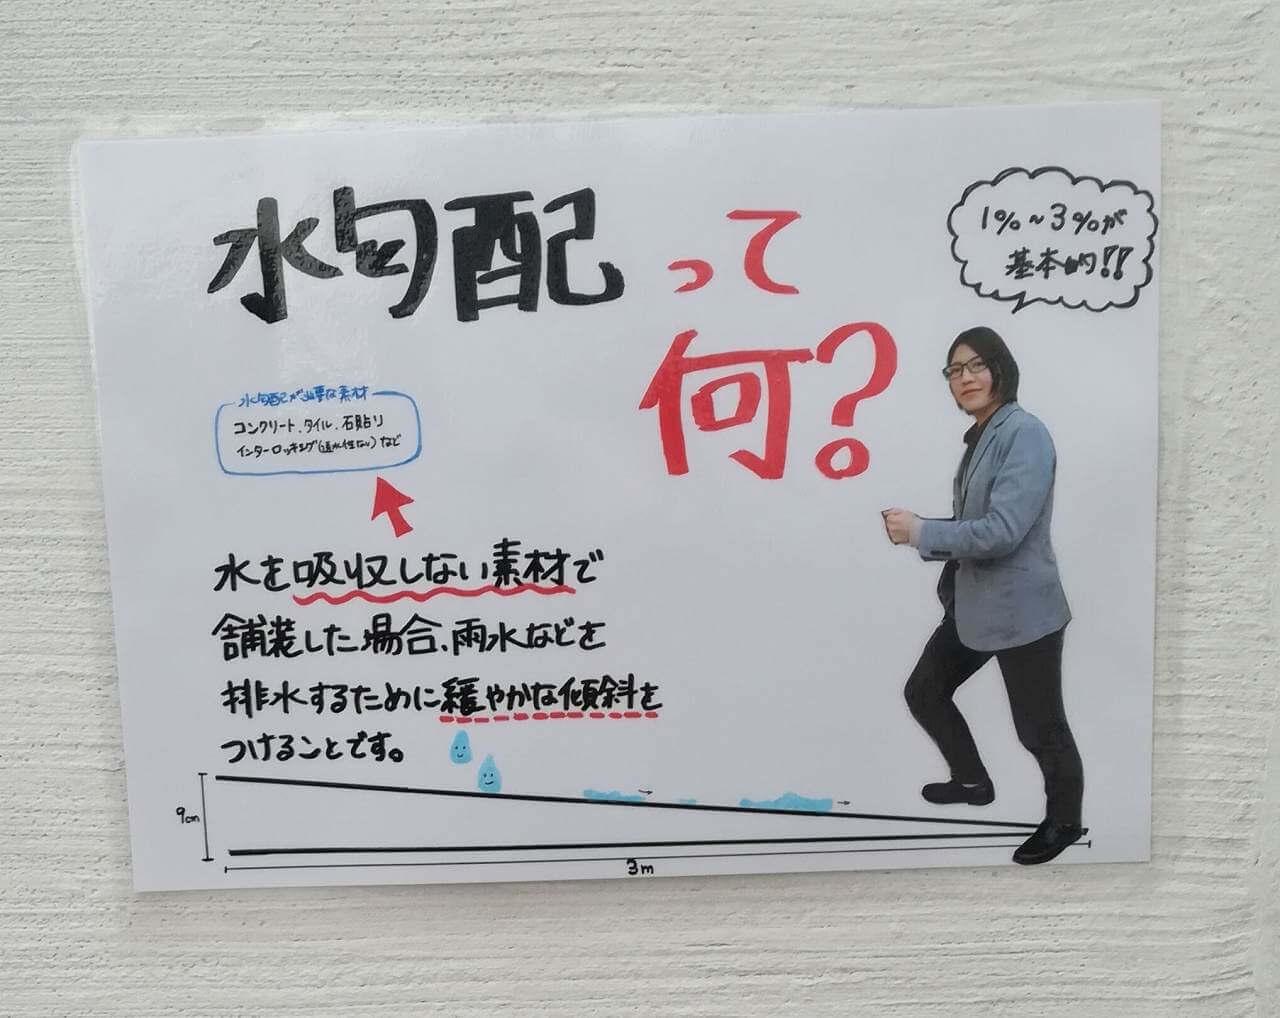 水勾配って
何?
1%~3%が
基本的!!
水勾配が必要な素材
コンクリート、タイル、石貼り
インターロッキング(透水性ない)など
水を吸収しない素材で
舗装した場合、雨水などを
排水するために緩やかな傾斜を
つけることです。
9cm
3m